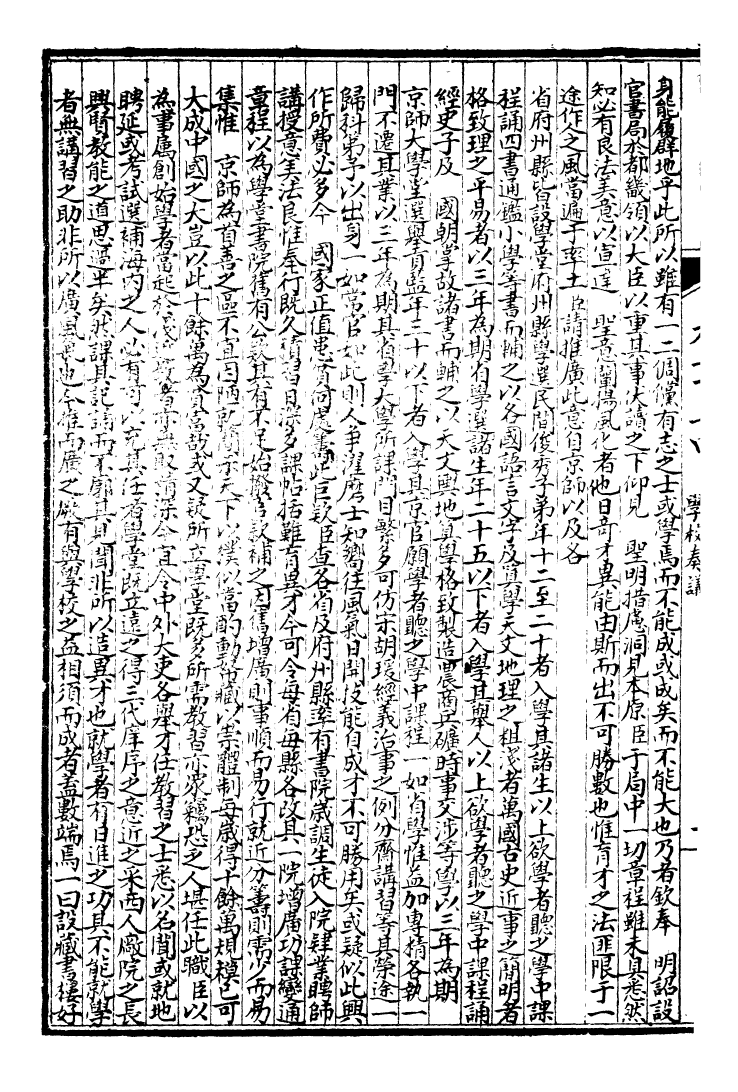 身能履廦地乎此所以雖有一二倜儻有志之士或學焉而不能成或成矣而不能大也乃者欽奉　明詔設
官書局於都畿領以大臣以重其事伏讀之下仰見　聖明措慮洞見本原臣于局中一切章程雖未具悉然
知必有良法美意以宣達　聖意闡揚風化者他日奇才異能由斯而出不可勝數也惟育才之法匪限于一
途作人之風當遍于率土臣請推廣此意自京師以及各
省府州縣皆設學堂府州縣學選民間俊秀子弟年十二至二十者入學其諸生以上欲學者聽之學中課
程誦四書通鑑小學等書而輔之以各國語言文字及算學天文地理之粗淺者萬國古史近事之簡明者
格致理之平易者以三年為期省學選諸生年二十五以下者入學其舉人以上欲學者聽之學中課程誦
經史子及　國朝掌故諸書而輔之以天文輿地算學格致製造農商兵礦時事交涉等學以三年為期
京師大學堂選舉貢監年三十以下者入學其京官願學者聽之學中課程一如省學惟益加專精各執一
門不遷其業以三年為期其省學大學所課門目繁多可仿宋胡瑗經義治事之例分齋講習等其榮途一
歸科第予以出身一如常官如此則人爭濯磨士知嚮往風氣日開技能自成才不可勝用矣或疑似此興
作所費必多今　國家正值患貧何處籌此巨款臣查各省及府州縣率有書院歲調生徒入院肄業聘師
講授意美法良惟奉行既久積習日深多課帖括難育異才今可令每省每縣各改其一院增廣功課變通
章程以為學堂書院舊有公款其有不足始撥官款補之因舊增廣則事順而易行就近分籌則需少而易
集惟　京師為首善之區不宜因陋就簡示天下以樸似當酌動帑藏以崇體制每歲得十餘萬規模已可
大成中國之大豈以此十餘萬為貧富哉或又疑所立學堂既多所需教習亦眾竊恐乏人堪任此職臣以
為事屬創始學者當起於淺近教者亦無取精深今宜令中外大吏各舉才任教習之士悉以名聞或就地
聘延或考試選補海內之人必有可以充其任者學堂既立遠之得三代庠序之意近之采西人廠院之長
興賢教能之道思過半矣然課其記誦而不廓其見聞非所以造異才也就學者有日進之功其不能就學
者無講習之助非所以廣風氣也今推而廣之厥有與學校之益相須而成者蓋數端焉一曰設藏書樓好
學校奏議